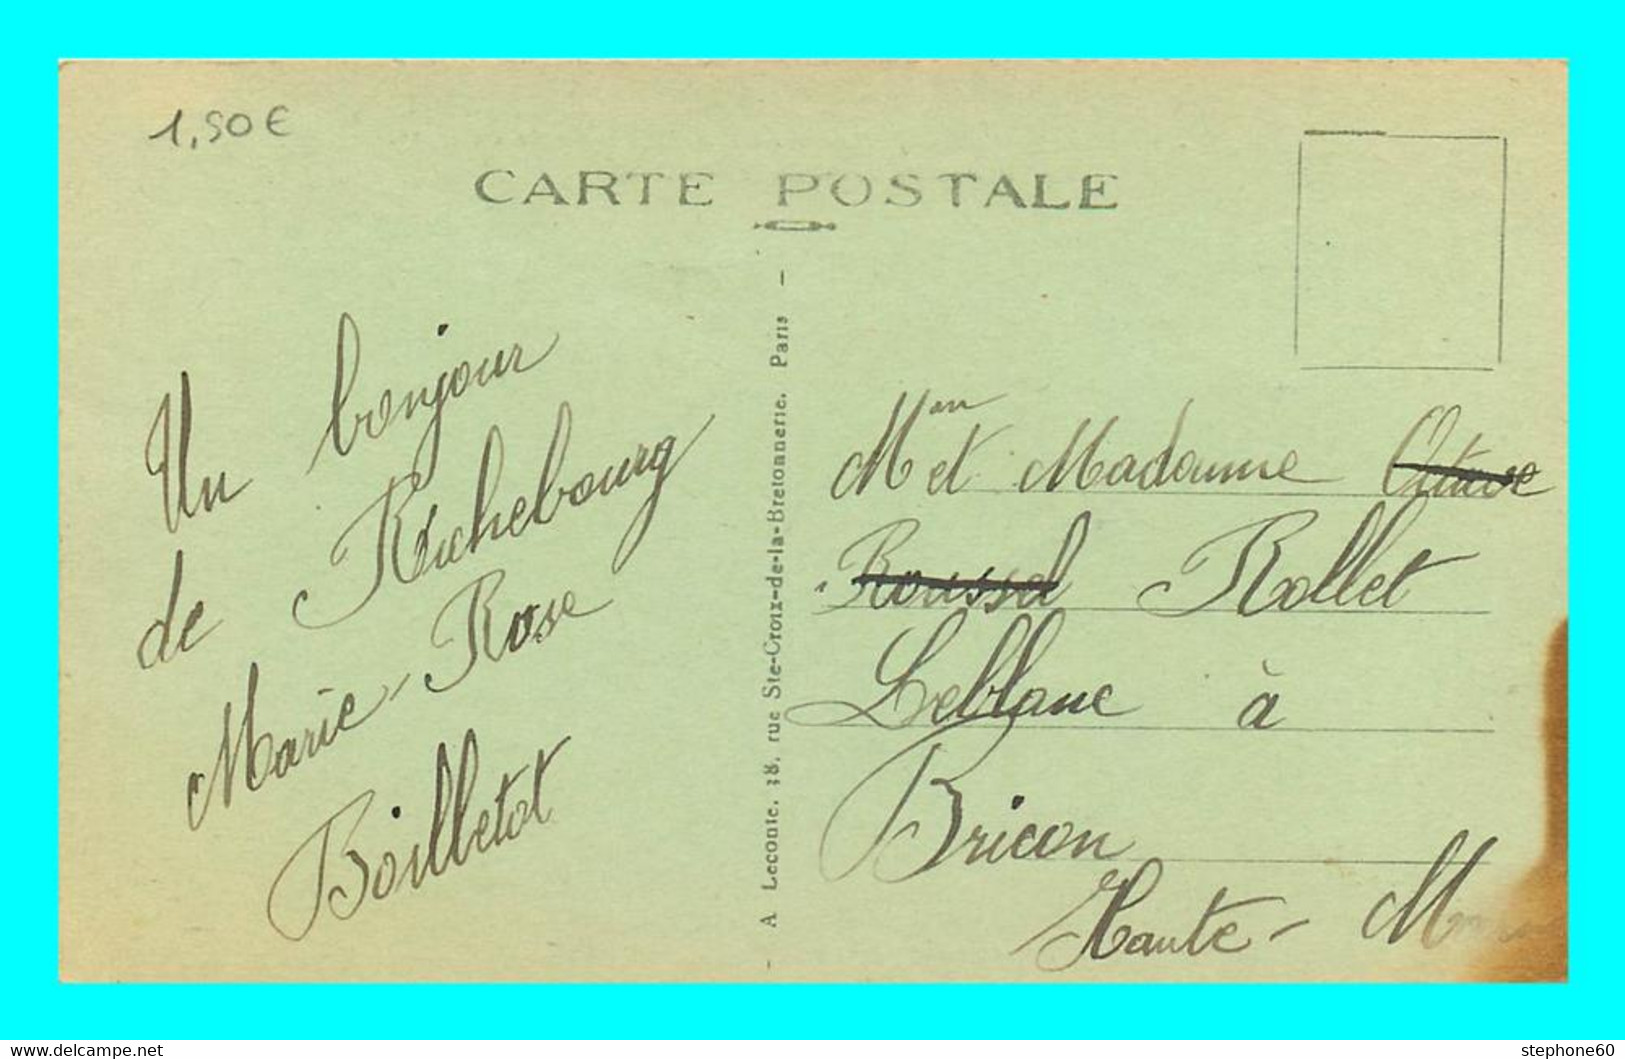 1,50€
CARTE POSTALE
Un bonjour
de Richebourg
Marie-Rose
Boilletot
A Leconte. 38. rue Ste-Croix-de-la-Bretonnerie. Paris
Mʳ et Madame Octave
Roussel Rollet
Leblanc à
Bricon
Haute-M
www.delcampe.net
stephone60